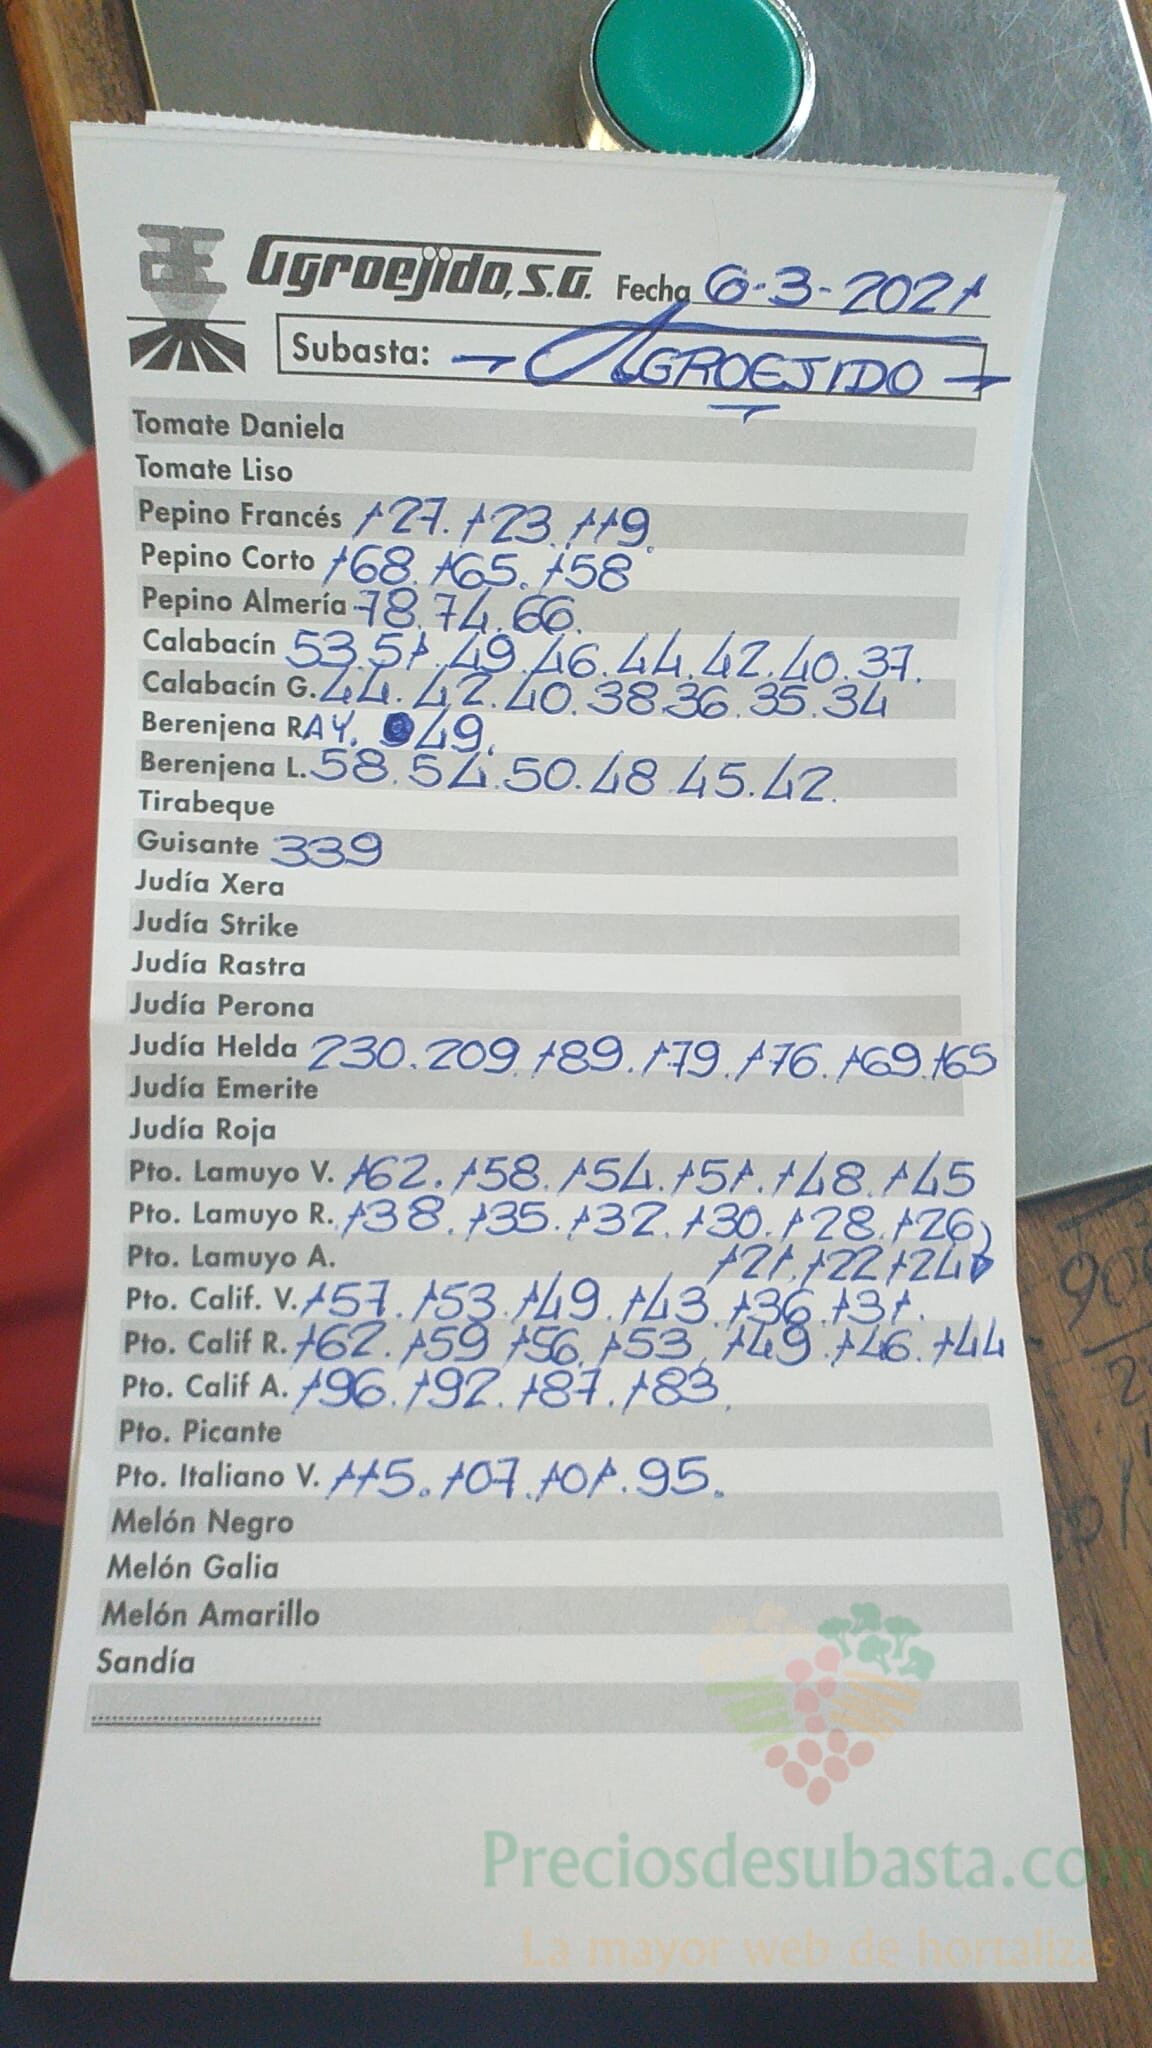 Agroejido, S.A. Fecha 6-3-2021
Subasta: AGROEJIDO
Tomate Daniela
Tomate Liso
Pepino Francés 127. 123. 119.
Pepino Corto 168. 165. 158
Pepino Almería 78. 74. 66.
Calabacín 53. 51. 49. 46. 44. 42. 40. 37.
Calabacín G. 44. 42. 40. 38. 36. 35. 34
Berenjena RAY. 49.
Berenjena L. 58. 54. 50. 48. 45. 42.
Tirabeque
Guisante 339
Judía Xera
Judía Strike
Judía Rastra
Judía Perona
Judía Helda 230. 209. 189. 179. 176. 169. 165
Judía Emerite
Judía Roja
Pto. Lamuyo V. 162. 158. 154. 151. 148. 145
Pto. Lamuyo R. 138. 135. 132. 130. 128. 126
Pto. Lamuyo A. 121. 122 124
Pto. Calif. V. 157. 153. 149. 143. 136. 131.
Pto. Calif R. 162. 159 156. 153. 149. 146. 144
Pto. Calif A. 196. 192. 187. 183.
Pto. Picante
Pto. Italiano V. 115. 107. 101. 95.
Melón Negro
Melón Galia
Melón Amarillo
Sandía
Preciosdesubasta.com
La mayor web de hortalizas